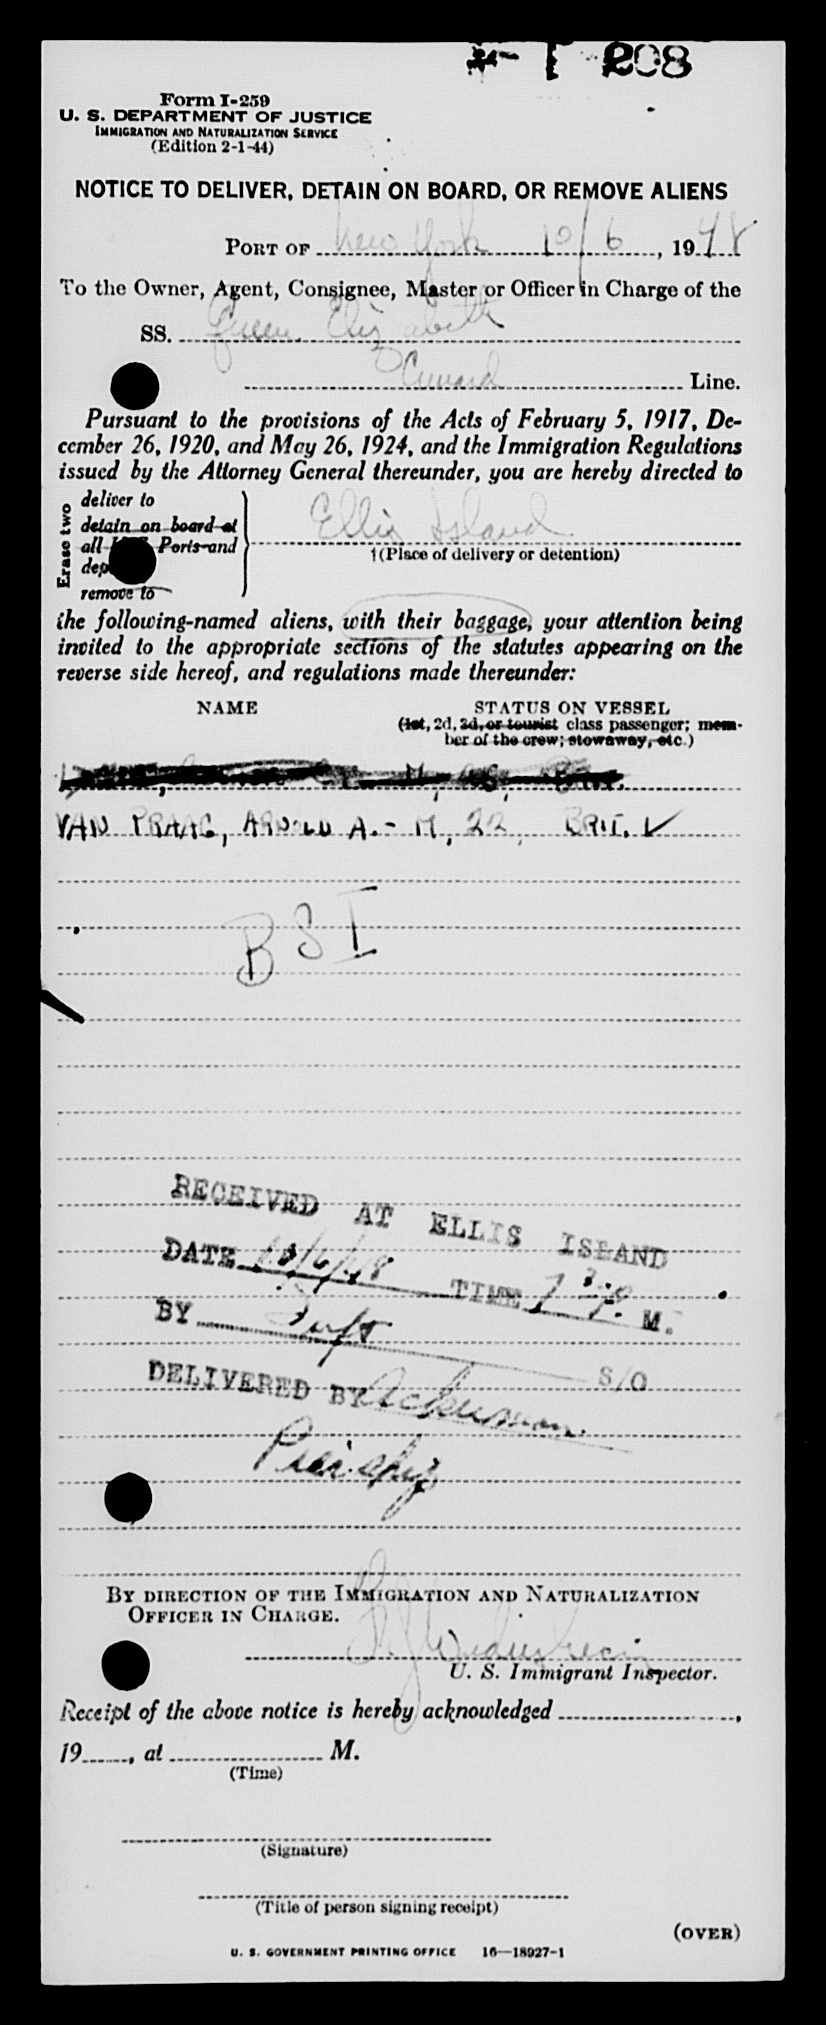 208
Form I-259
U. S. DEPARTMENT OF JUSTICE
IMMIGRATION AND NATURALIZATION SERVICE
(Edition 2-1-44)
NOTICE TO DELIVER, DETAIN ON BOARD, OR REMOVE ALIENS
PORT OF New York 10/6, 1948
To the Owner, Agent, Consignee, Master or Officer in Charge of the
SS. Queen Elizabeth
Cunard Line.
Pursuant to the provisions of the Acts of February 5, 1917, De-
cember 26, 1920, and May 26, 1924, and the Immigration Regulations
issued by the Attorney General thereunder, you are hereby directed to
Erase two
deliver to
detain on board at
all Ports and
remove to
Ellis Island
†(Place of delivery or detention)
the following-named aliens, with their baggage, your attention being
invited to the appropriate sections of the statutes appearing on the
reverse side hereof, and regulations made thereunder:
NAME STATUS ON VESSEL
(1st, 2d, 3d, or tourist class passenger; mem-
ber of the crew; stowaway, etc.)
VAN PRAAG, ARNOLD A. - M, 22, BRIT. ✓
BSI
RECEIVED AT ELLIS ISLAND
DATE 10/6/48 TIME 7 30 P. M.
BY
S/O
DELIVERED BY Ackerman
BY DIRECTION OF THE IMMIGRATION AND NATURALIZATION
OFFICER IN CHARGE.
U. S. Immigrant Inspector.
Receipt of the above notice is hereby acknowledged ,
19 , at M.
(Time)
(Signature)
(Title of person signing receipt)
(OVER)
U. S. GOVERNMENT PRINTING OFFICE 16—18927-1